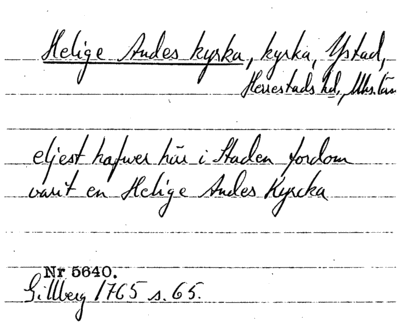 Helige Andes kyrka, kyrka, Ystad,
Herrestads hd, Mhs. län
eljest hafwer här i Staden fordom
varit en Helige Andes Kyrcka
Nr 5640.
Gillberg 1765 s. 65.